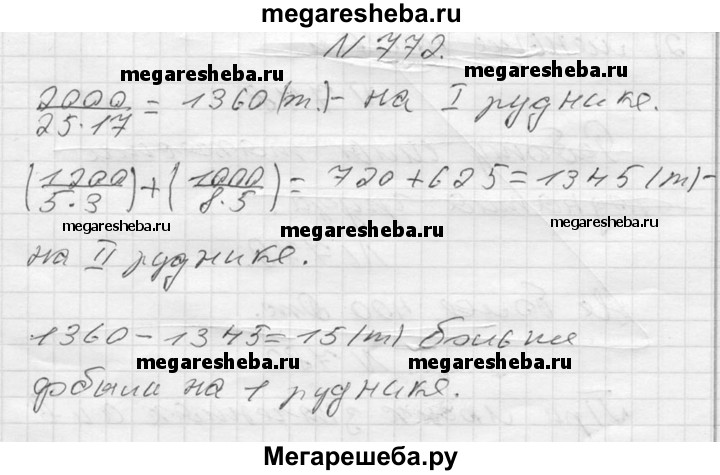 megaresheba.ru
N 772.
megaresheba.ru megaresheba.ru
2000/25·17 = 1360 (т.) - на I руднике.
(1200/5·3) + (1000/8·5) = 720 + 625 = 1345 (т) -
megaresheba.ru megaresheba.ru megaresheba.ru
на II руднике.
1360 - 1345 = 15 (т) больше
megaresheba.ru megaresheba.ru
добыли на 1 руднике.
Мегарешеба.ру